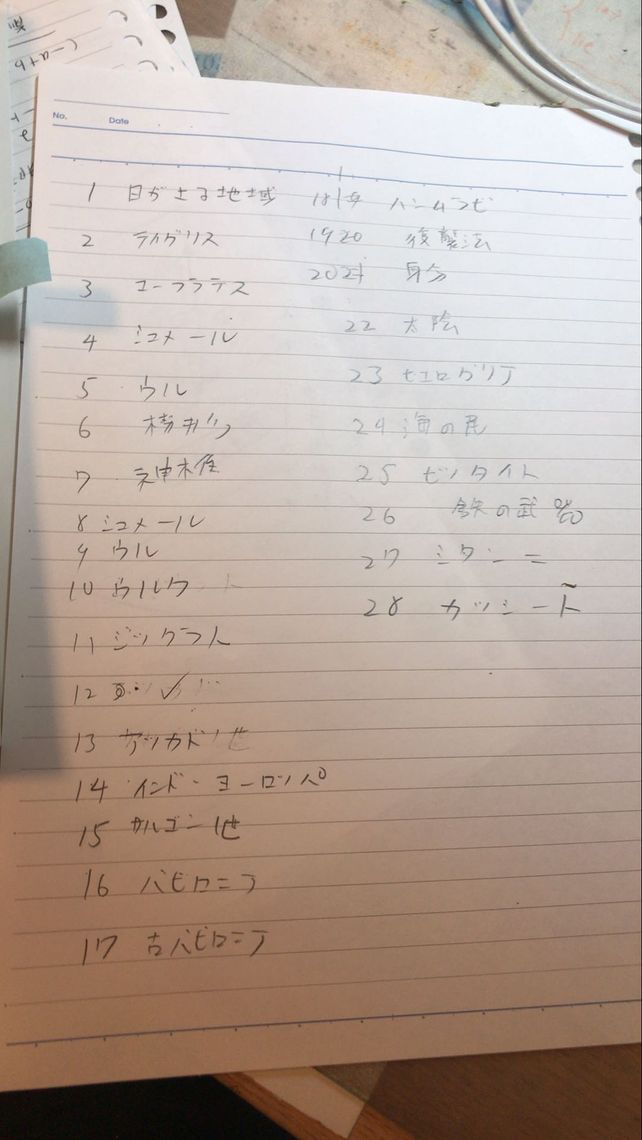 No.
Date
1 日が上る地域
2 ティグリス
3 ユーフラテス
4 シュメール
5 ウル
6
7 神権
8 シュメール
9 ウル
10 ウルク
11 ジックラト
12
13 アッカド
14 インド・ヨーロッパ
15 サルゴン 世
16 バビロニア
17 古バビロニア
18 ハンムラビ
1920 復讐法
2021 身分
22 太陰
23
24 海の民
25 ヒッタイト
26 鉄の武器
27 ミタンニ
28 カッシート